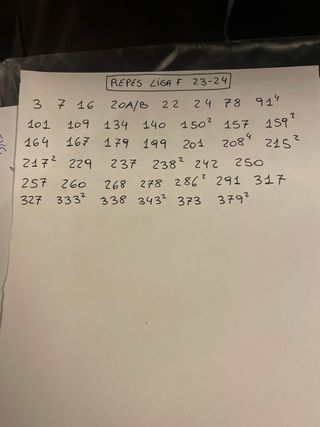 REPES LIGA F 23-24
3 7 16 20A/B 22 24 78 91⁴
101 109 134 140 150² 157 159²
164 167 179 199 201 208⁴ 215²
217² 229 237 238² 242 250
257 260 268 278 286² 291 317
327 333² 338 343² 373 379²